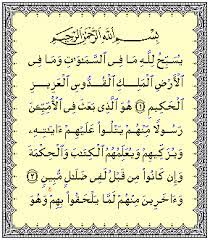 بِسْمِ ٱللَّهِ ٱلرَّحْمَٰنِ ٱلرَّحِيمِ
يُسَبِّحُ لِلَّهِ مَا فِى ٱلسَّمَٰوَٰتِ وَمَا فِى
ٱلْأَرْضِ ٱلْمَلِكِ ٱلْقُدُّوسِ ٱلْعَزِيزِ
ٱلْحَكِيمِ ١ هُوَ ٱلَّذِى بَعَثَ فِى ٱلْأُمِّيِّۦنَ
رَسُولًا مِّنْهُمْ يَتْلُوا۟ عَلَيْهِمْ ءَايَٰتِهِۦ
وَيُزَكِّيهِمْ وَيُعَلِّمُهُمُ ٱلْكِتَٰبَ وَٱلْحِكْمَةَ
وَإِن كَانُوا۟ مِن قَبْلُ لَفِى ضَلَٰلٍ مُّبِينٍ ٢
وَءَاخَرِينَ مِنْهُمْ لَمَّا يَلْحَقُوا۟ بِهِمْ وَهُوَ